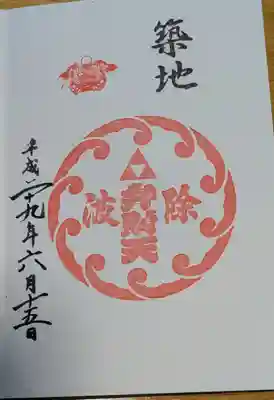 築地
波除
弁財天
平成二十九年六月十五日